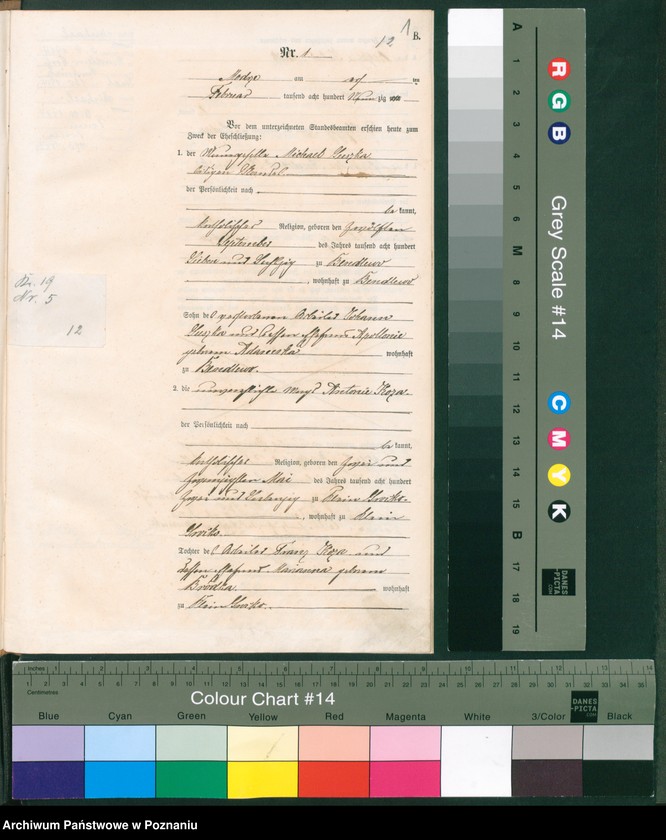 1
12
B.
Nr. 1
Modze am ten
Februar tausend acht hundert zig
Vor dem unterzeichneten Standesbeamten erschien heute zum
Zweck der Eheschließung:
1. der Michael
der Persönlichkeit nach
be kannt,
katholischer Religion, geboren den zwölften
September des Jahres tausend acht hundert
sieben und sechzig zu Bendlewo
, wohnhaft zu Bendlewo
Sohn des verstorbenen Arbeiters Johann
und dessen Ehefrau Apollonie
geborene wohnhaft
zu Bendlewo.
2. die unverehelichte Magd Antonie Koza
der Persönlichkeit nach
be kannt,
katholischer Religion, geboren den zwei und
zwanzigsten Mai des Jahres tausend acht hundert
zwei und siebenzig zu Klein
, wohnhaft zu Klein
Tochter des Arbeiters Franz Koza und
dessen Ehefrau Marianna geborene
wohnhaft
zu Klein
Nr. 19
Nr. 5
12
A
1
2
3
4
5
6
M
8
9
10
11
12
13
14
15
B
17
18
19
R
G
B
Grey Scale #14
C
M
Y
K
DANES
-PICTA
.COM
Inches 1 2 3 4 5 6 7 8 9 10 11 12 13 14
Centimetres 1 2 3 4 5 6 7 8 9 10 11 12 13 14 15 16 17 18 19 20 21 22 23 24 25 26 27 28 29 30 31 32 33 34 35
Colour Chart #14
DANES
-PICTA
.COM
Blue Cyan Green Yellow Red Magenta White 3/Color Black
Archiwum Państwowe w Poznaniu